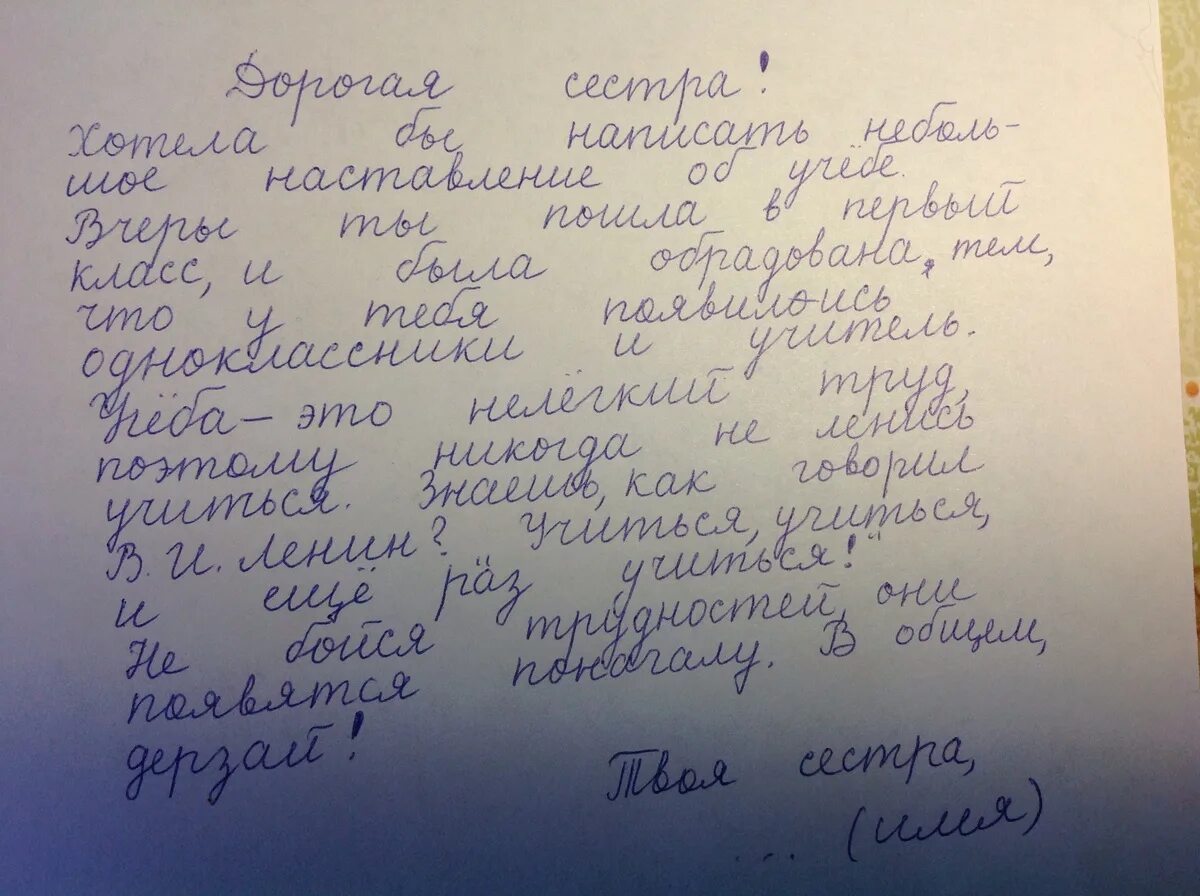 Дорогая сестра!
Хотела бы написать неболь-
шое наставление об учёбе.
Вчеры ты пошла в первый
класс, и была обрадована тем,
что у тебя появились
одноклассники и учитель.
Учёба – это нелёгкий труд,
поэтому никогда не ленись
учиться. Знаешь, как говорил
В. И. Ленин? Учиться, учиться,
и ещё раз учиться!"
Не бойся трудностей, они
появятся поначалу. В общем,
дерзай!
Твоя сестра,
... (имя)